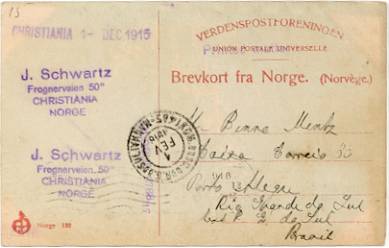 15
CHRISTIANIA 1- DEC 1915
VERDENSPOSTFORENINGEN
UNION POSTALE UNIVERSELLE
Brevkort fra Norge. (Norvège.)
J. Schwartz
Frognerveien 50"
CHRISTIANIA
NORGE
J. Schwartz
Frognerveien. 50"
CHRISTIANIA
NORGE
4
FEV
1916
Caixa Correio 35
Porto Alegre
Rio Grande do Sul
do Sul
Brazil
Norge